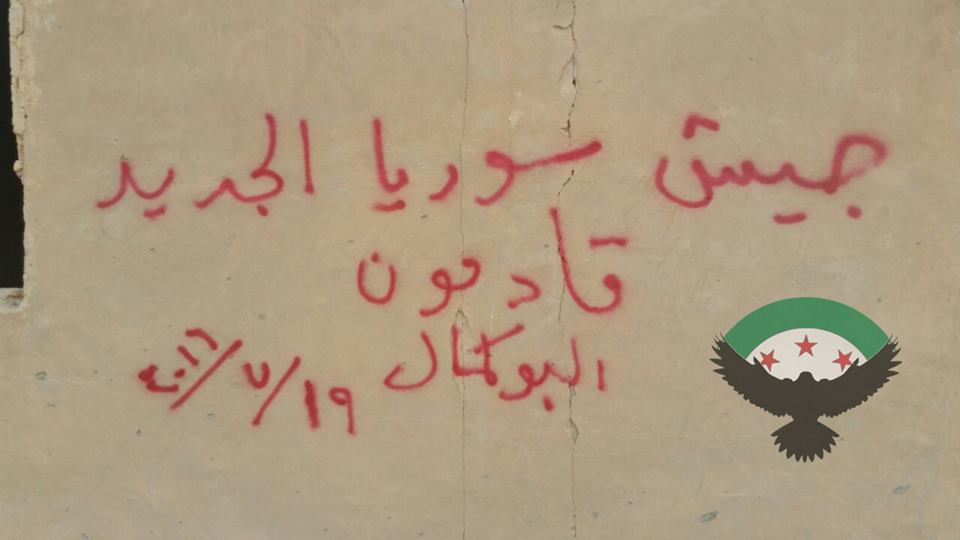 جيش سوريا الجديد
قادمون
البوكمال ١٩/٧/٢٠١٦